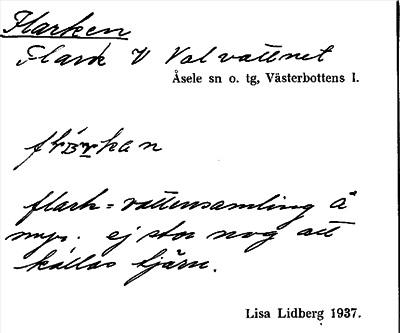 Flarken
Flark V Valvattnet
Åsele sn o. tg, Västerbottens l.
flark = vattensamling å
myr. ej stor nog att
kallas tjärn.
Lisa Lidberg 1937.